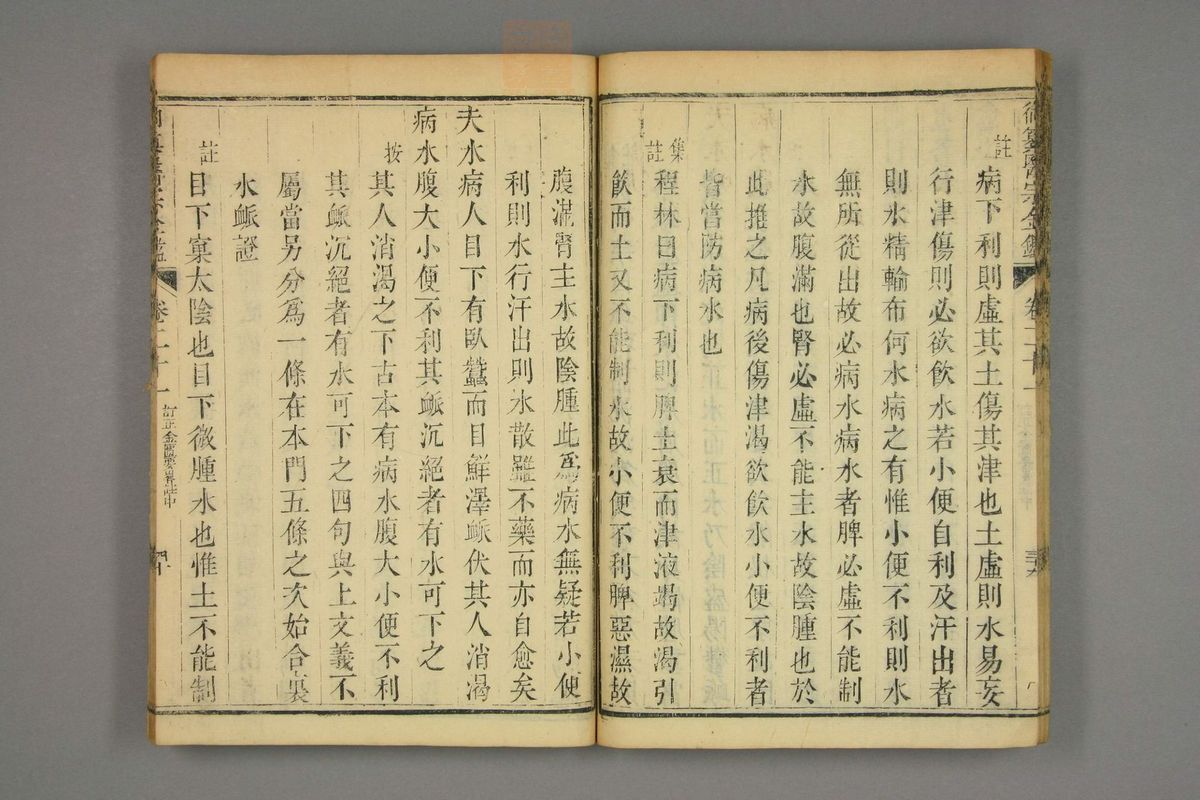 註
病下利則虛其土傷其津也土虛則水易妄
行津傷則必欲飲水若小便自利及汗出者
則水精輸布何水病之有惟小便不利則水
無所從出故必病水病水者脾必虛不能制
水故腹滿也腎必虛不能主水故陰腫也於
此推之凡病後傷津渴欲飲水小便不利者
皆當防病水也
集註
程林曰病下利則脾土衰而津液竭故渴引
飲而土又不能制水故小便不利脾惡濕故
腹滿腎主水故陰腫此爲病水無疑若小便
利則水行汗出則水散雖不藥而亦自愈矣
夫水病人目下有臥蠶面目鮮澤脈伏其人消渴
病水腹大小便不利其脈沉絕者有水可下之
按
其人消渴之下古本有病水腹大小便不利
其脈沉絕者有水可下之四句與上文義不
屬當另分爲一條在本門五條之次始合裏
水脈證
註
目下窠太陰也目下微腫水也惟土不能制
卷二十一
訂正金匱要畧註中